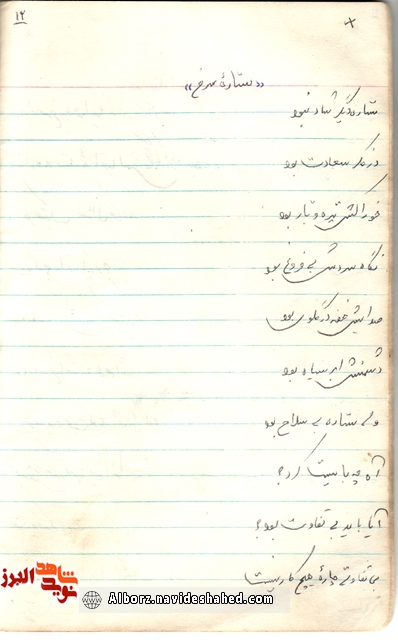 ۱۲
×
«ستارهٔ سرخ»
ستاره دیگر شاد نبود
در فکر سعادت بود
تیره و تار بود
نگاه سردش بی فروغ بود
صدایش خفه در گلوی بود
دشمنش ابر سیاه بود
ولی ستاره بی سلاح بود
آه چه بایست کرد؟
آیا باید بی تفاوت بود؟
بی تفاوتی چارهٔ هیچ کار نیست
شاهد
نوید
البرز
Alborz.navideshahed.com